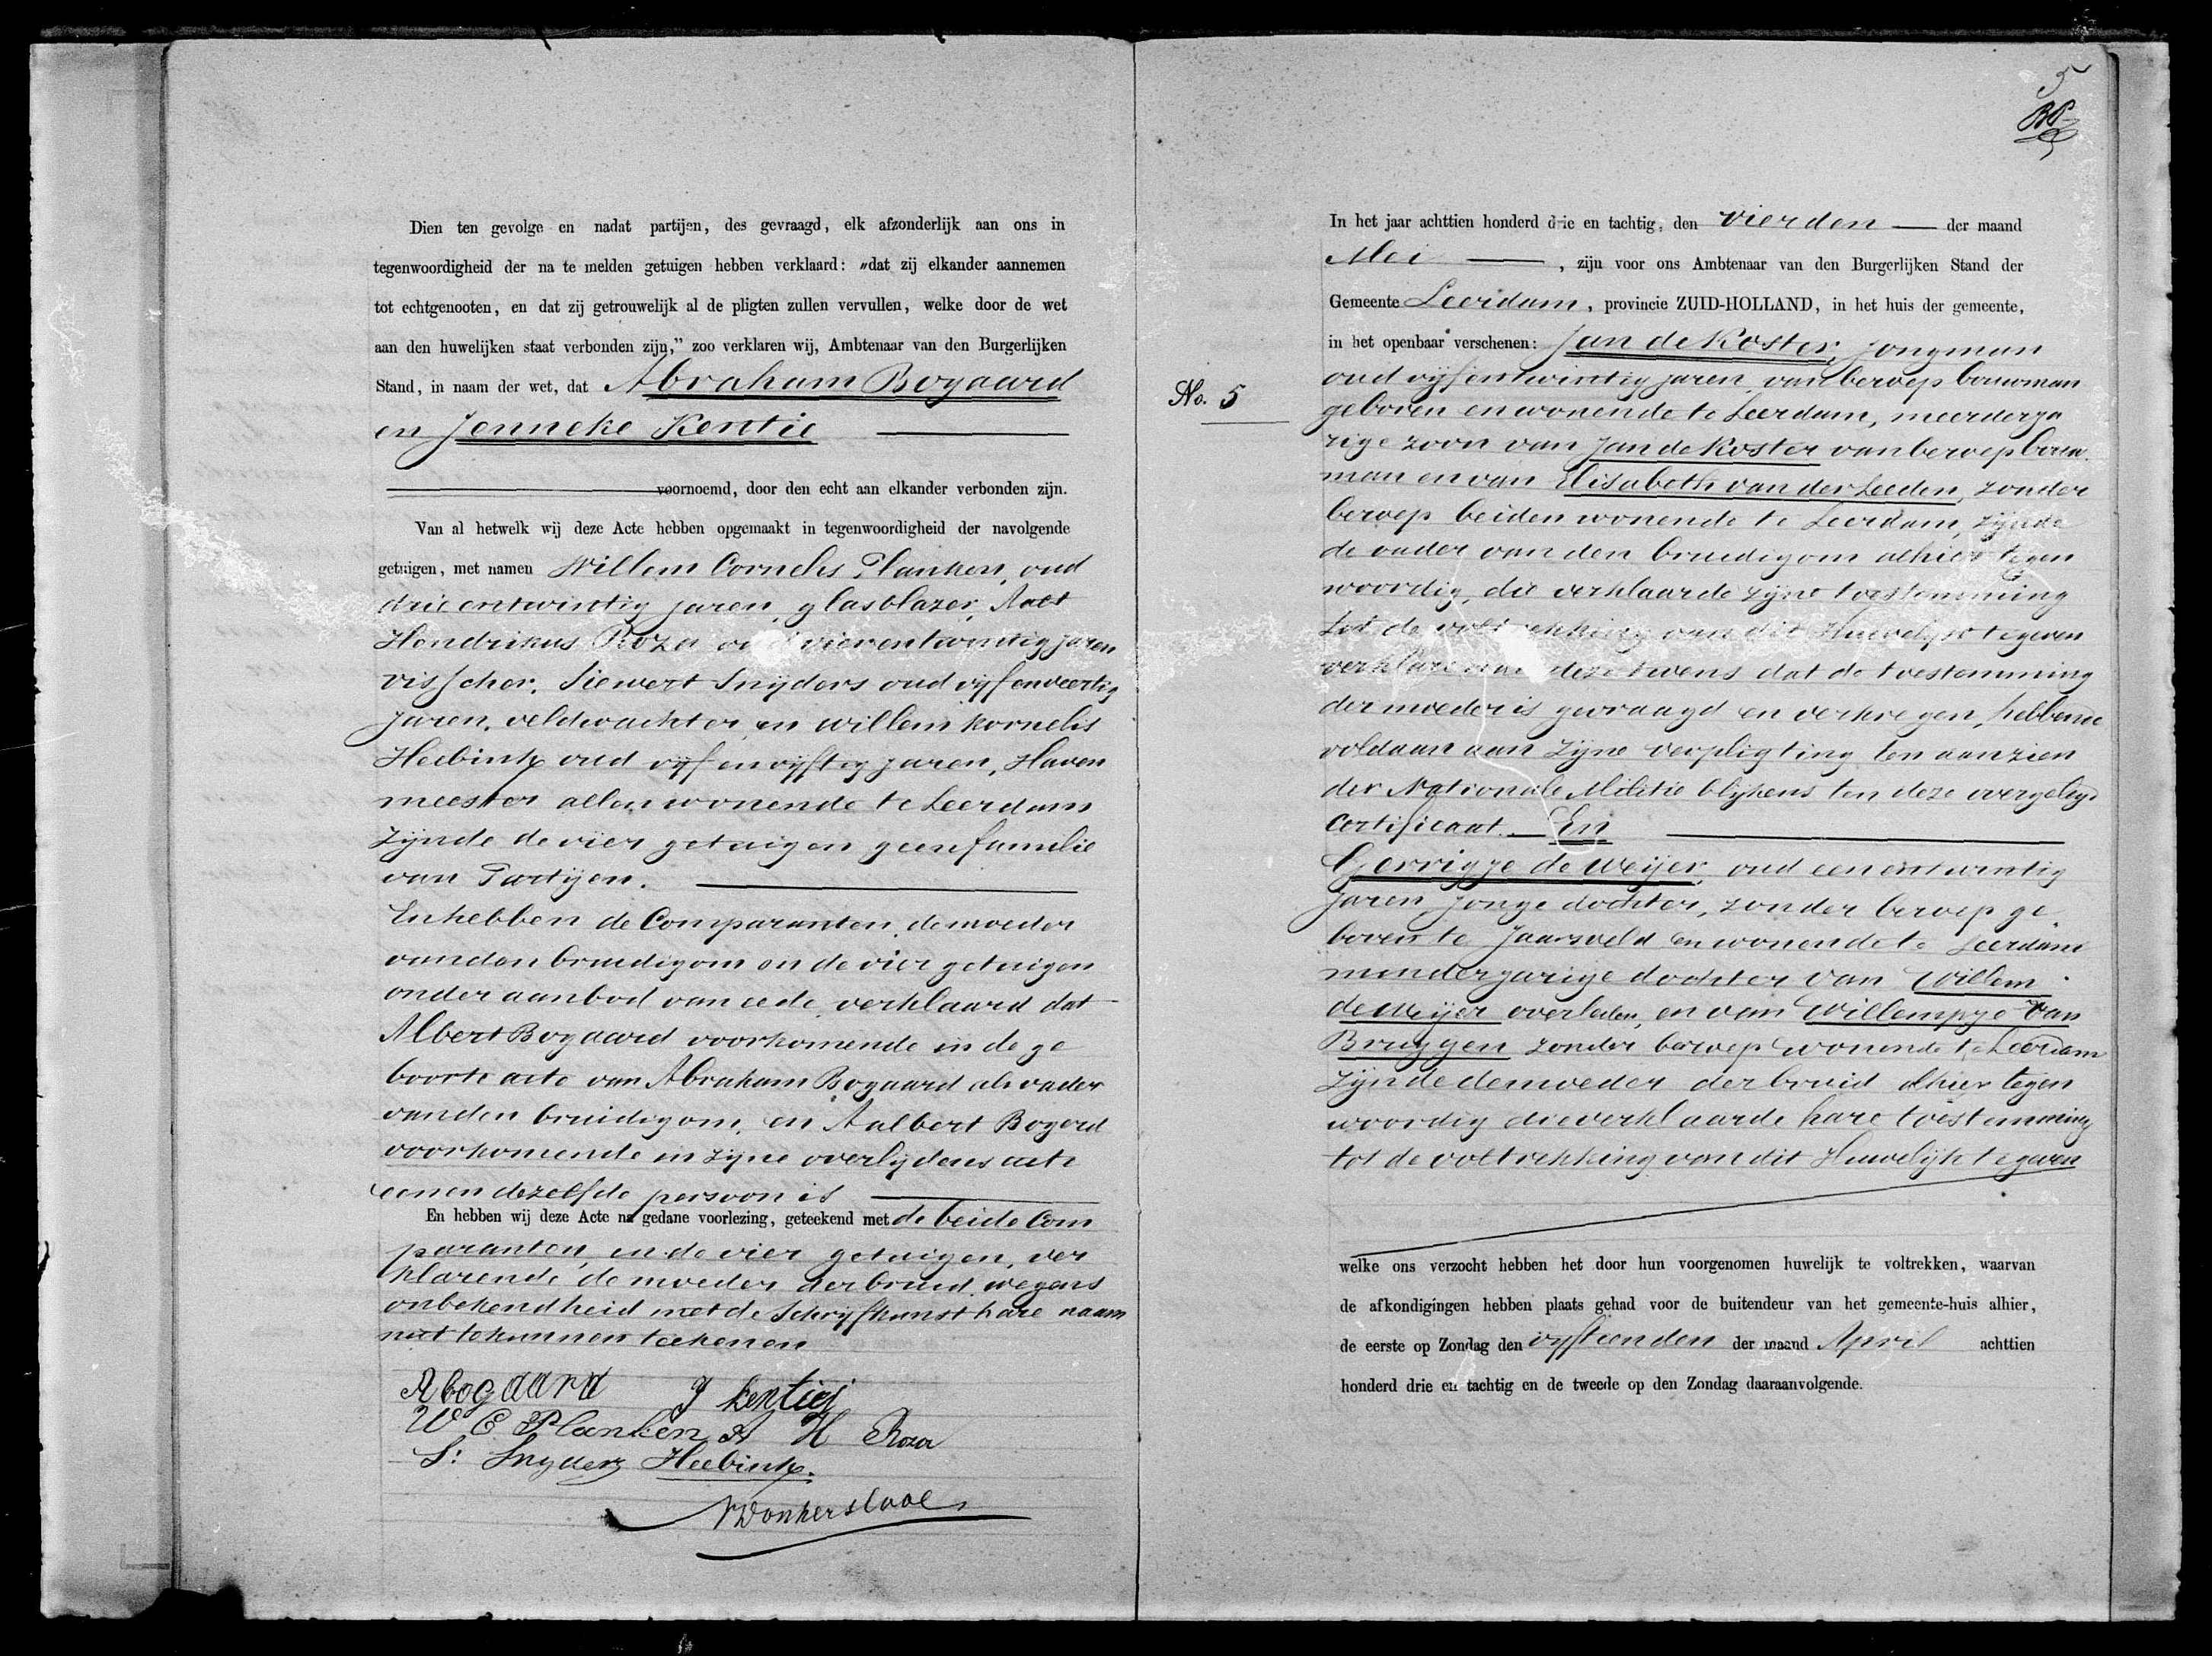 Dien ten gevolge en nadat partijen, des gevraagd, elk afzonderlijk aan ons in
tegenwoordigheid der na te melden getuigen hebben verklaard: „dat zij elkander aannemen
tot echtgenooten, en dat zij getrouwelijk al de pligten zullen vervullen, welke door de wet
aan den huwelijken staat verbonden zijn,” zoo verklaren wij, Ambtenaar van den Burgerlijken
Stand, in naam der wet, dat Abraham Bogaard
en Jenneke Kentie
voornoemd, door den echt aan elkander verbonden zijn.
Van al hetwelk wij deze Acte hebben opgemaakt in tegenwoordigheid der navolgende
getuigen, met namen Willem Cornelis Planken, oud
drie entwintig jaren, glasblazer, Aart
Hendrikus Roza oud vierentwintig jaren
visscher, Siewert Snijders oud vijfenveertig
jaren, veldwachter, en Willem Kornelis
Heebink oud vijf en vijftig jaren, Haven
meester allen wonende te Leerdam
zijnde de vier getuigen geen familie
van Partijen.
En hebben de Comparanten, de moeder
van den bruidigom en de vier getuigen
onder aanbod van eede, verklaard dat
Albert Bogaard voorkomende in de ge
boorte acte van Abraham Bogaard als vader
van den bruidigom, en Aalbert Bogerd
voorkomende in zijne overlijdens acte
een en dezelfde persoon is
En hebben wij deze Acte na gedane voorlezing, geteekend met de beide Com
paranten, en de vier getuigen, ver
klarende de moeder der bruid wegens
onbekendheid met de schrijfkunst hare naam
niet te kunnen teekenen
A bogaard J kentiej
W C Planken A H Roza
S: Snyders Heebink.
Donkersloot
5
In het jaar achttien honderd drie en tachtig, den vierden der maand
Mei, zijn voor ons Ambtenaar van den Burgerlijken Stand der
Gemeente Leerdam, provincie ZUID-HOLLAND, in het huis der gemeente,
in het openbaar verschenen: Jan de Koster, jongman
No. 5
oud vijfentwintig jaren, van beroep bouwman
geboren en wonende te Leerdam, meerderja
rige zoon van Jan de Koster van beroep bouw
man en van Elisabeth van der Leeden, zonder
beroep beiden wonende te Leerdam, zijnde
de vader van den bruidigom alhier tegen
woordig, die verklaarde zijne toestemming
tot de voltrekking van dit Huwelijk te geven
verklarende deze tevens dat de toestemming
der moeder is gevraagd en verkregen, hebbende
voldaan aan zijne verpligting ten aanzien
der Nationale Militie blijkens ten deze overgelegd
certificaat. En
Gerrigje de Weijer, oud een en twintig
jaren, jonge dochter, zonder beroep ge
boren te Jaarsveld en wonende te Leerdam
minderjarige dochter van Willem
de Weijer overleden, en van Willempje van
Bruggen zonder beroep wonende te Leerdam
zijnde de moeder der bruid alhier tegen
woordig die verklaarde hare toestemming
tot de voltrekking van dit Huwelijk te geven
welke ons verzocht hebben het door hun voorgenomen huwelijk te voltrekken, waarvan
de afkondigingen hebben plaats gehad voor de buitendeur van het gemeente-huis alhier,
de eerste op Zondag den vijftienden der maand April achttien
honderd drie en tachtig en de tweede op den Zondag daaraanvolgende.